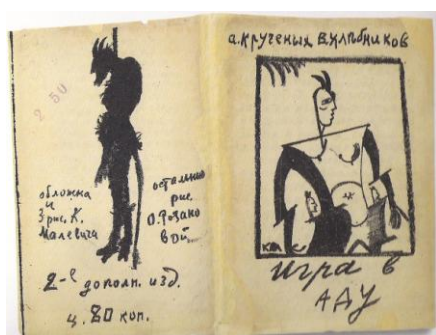 2 50
обложка
и
3 рис. К.
Малевича
остальные
рис.
О. Розано
вой
2-е дополн. изд.
ц. 80 коп.
а. Крученых В. Хлебников
КМ
игра в
аду